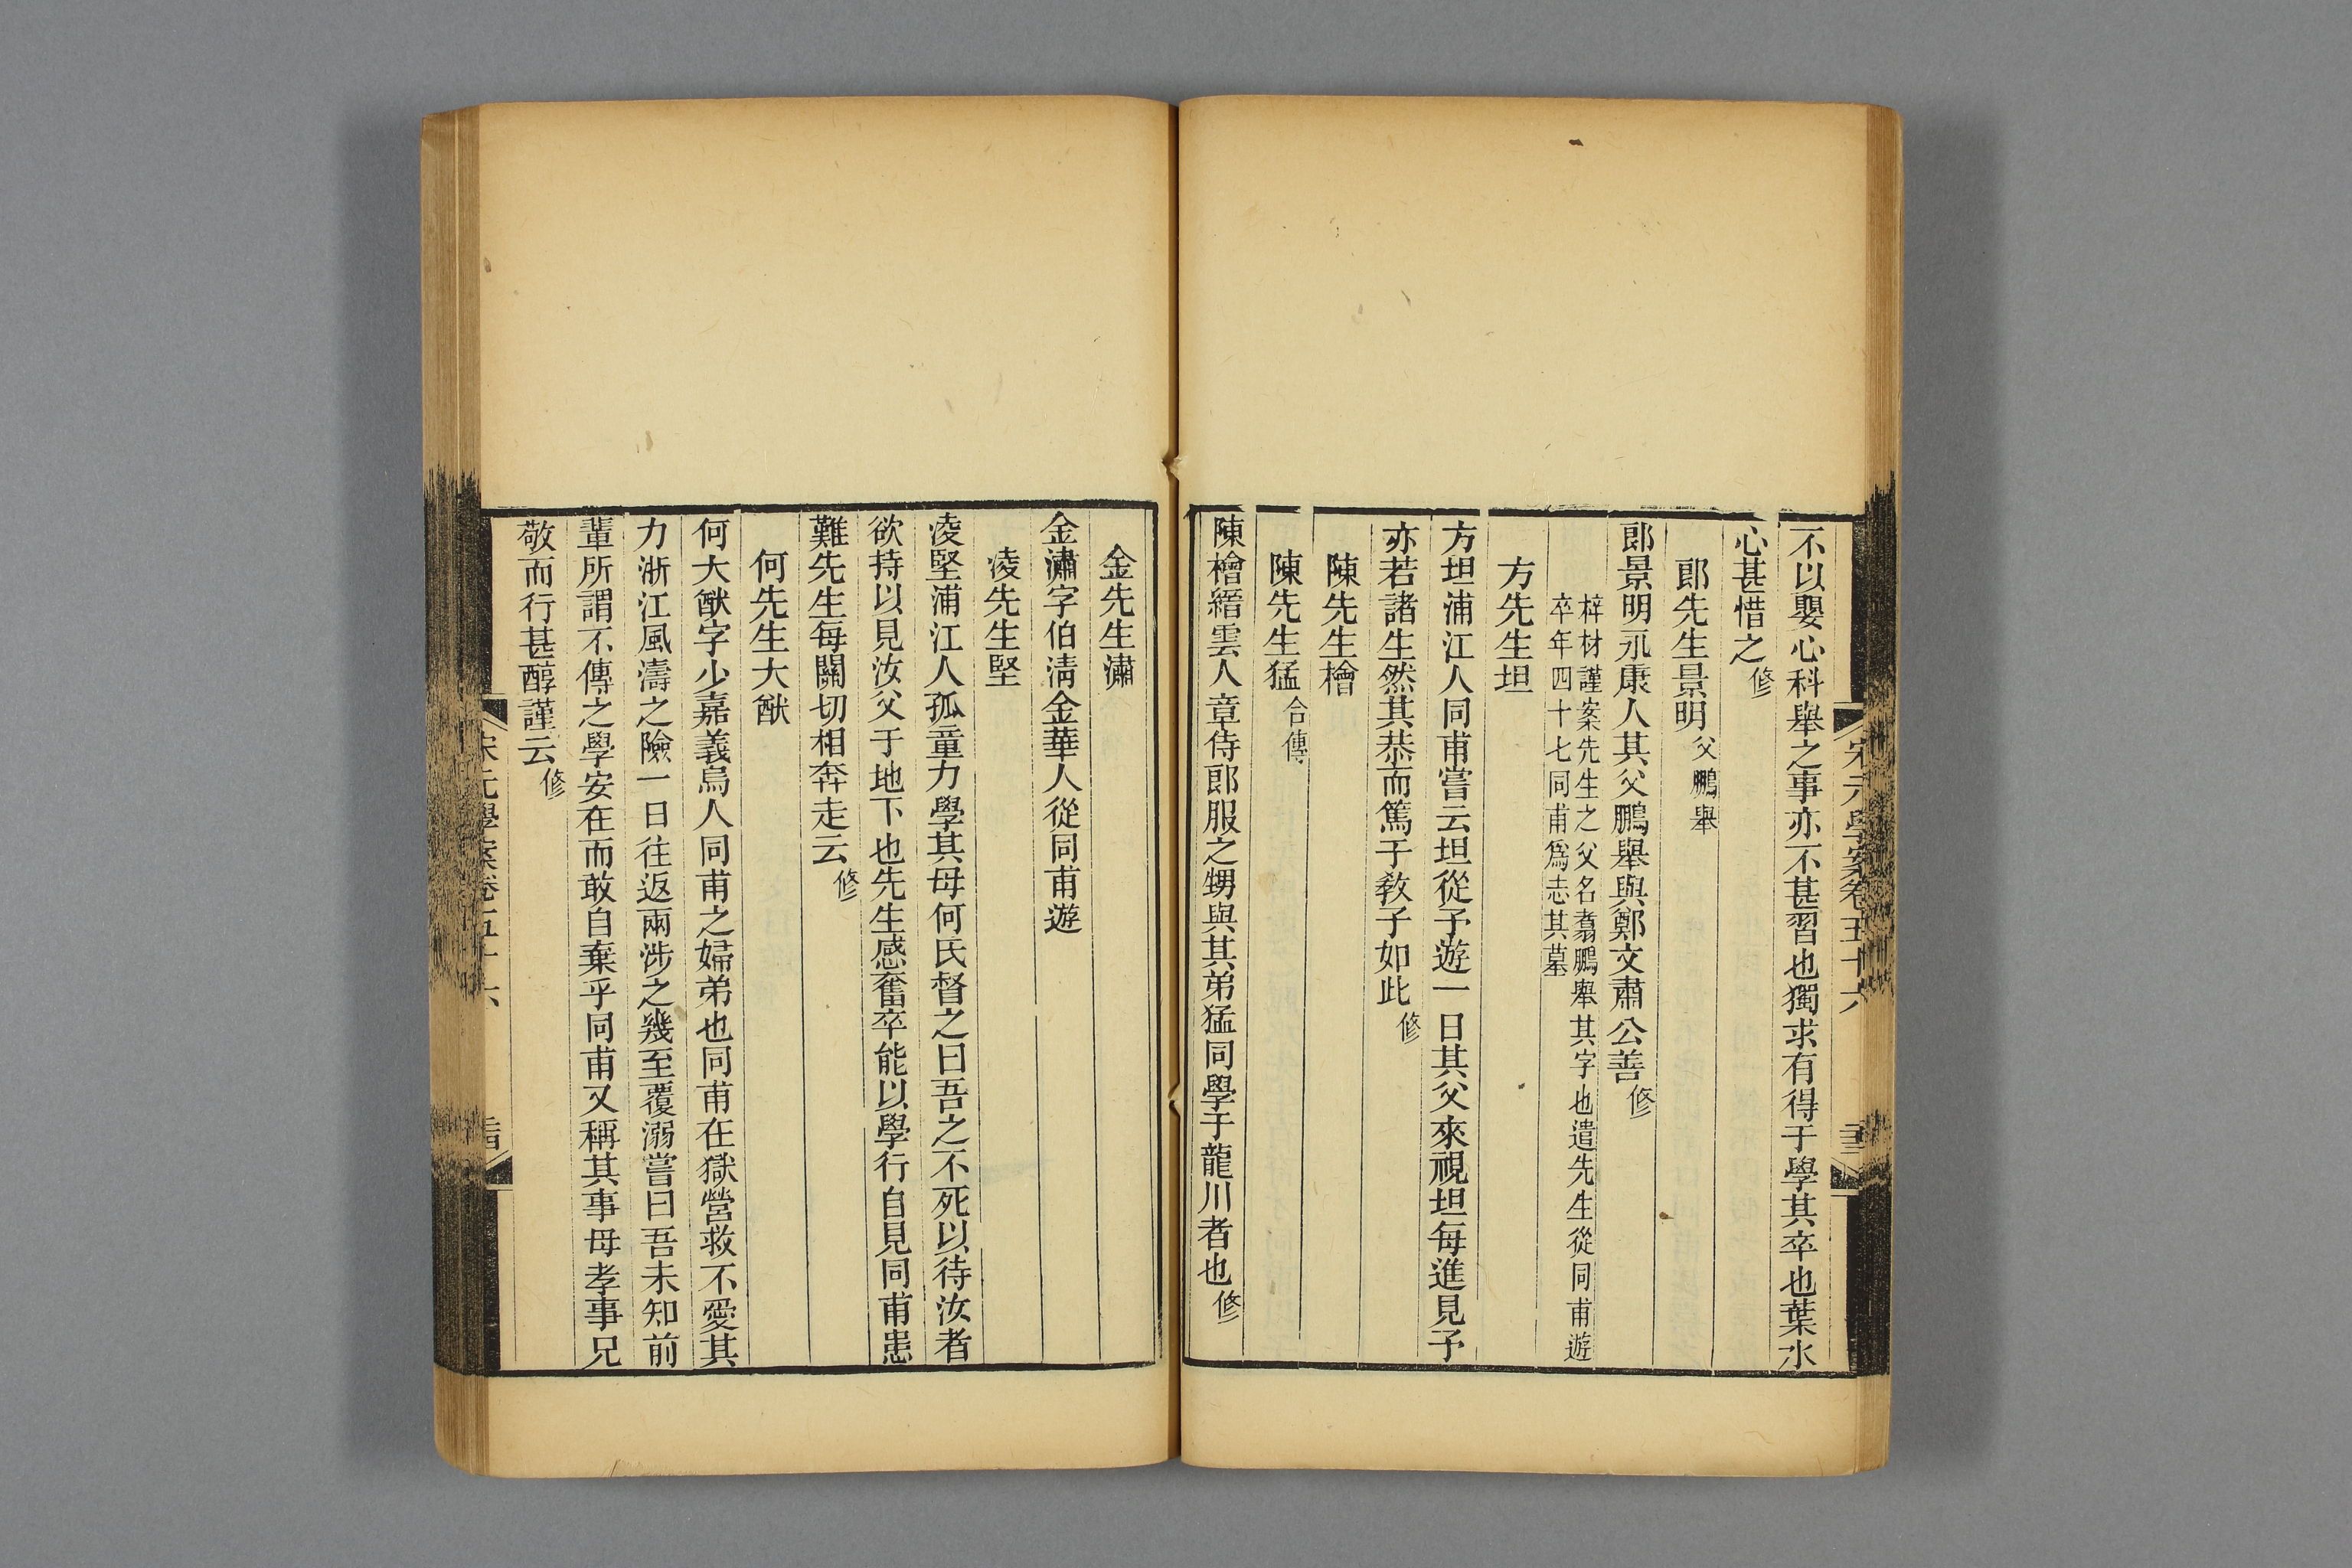 不以嬰心科舉之事亦不甚習也獨求有得于學其卒也葉水
心甚惜之修
郎先生景明父鵬舉
郎景明永康人其父鵬舉與鄭文肅公善修
梓材謹案先生之父名翥鵬舉其字也遣先生從同甫遊
卒年四十七同甫爲志其墓
方先生坦
方坦浦江人同甫嘗云坦從予遊一日其父來視坦每進見予
亦若諸生然其恭而篤于敎子如此修
陳先生檜
陳先生猛合傳
陳檜縉雲人章侍郎服之甥與其弟猛同學于龍川者也修
宋元學案卷五十六
金先生潚
金潚字伯淸金華人從同甫遊
凌先生堅
凌堅浦江人孤童力學其母何氏督之曰吾之不死以待汝者
欲持以見汝父于地下也先生感奮卒能以學行自見同甫患
難先生每關切相奔走云修
何先生大猷
何大猷字少嘉義烏人同甫之婦弟也同甫在獄營救不愛其
力浙江風濤之險一日往返兩涉之幾至覆溺嘗曰吾未知前
輩所謂不傳之學安在而敢自棄乎同甫又稱其事母孝事兄
敬而行甚醇謹云修
宋元學案卷五十六